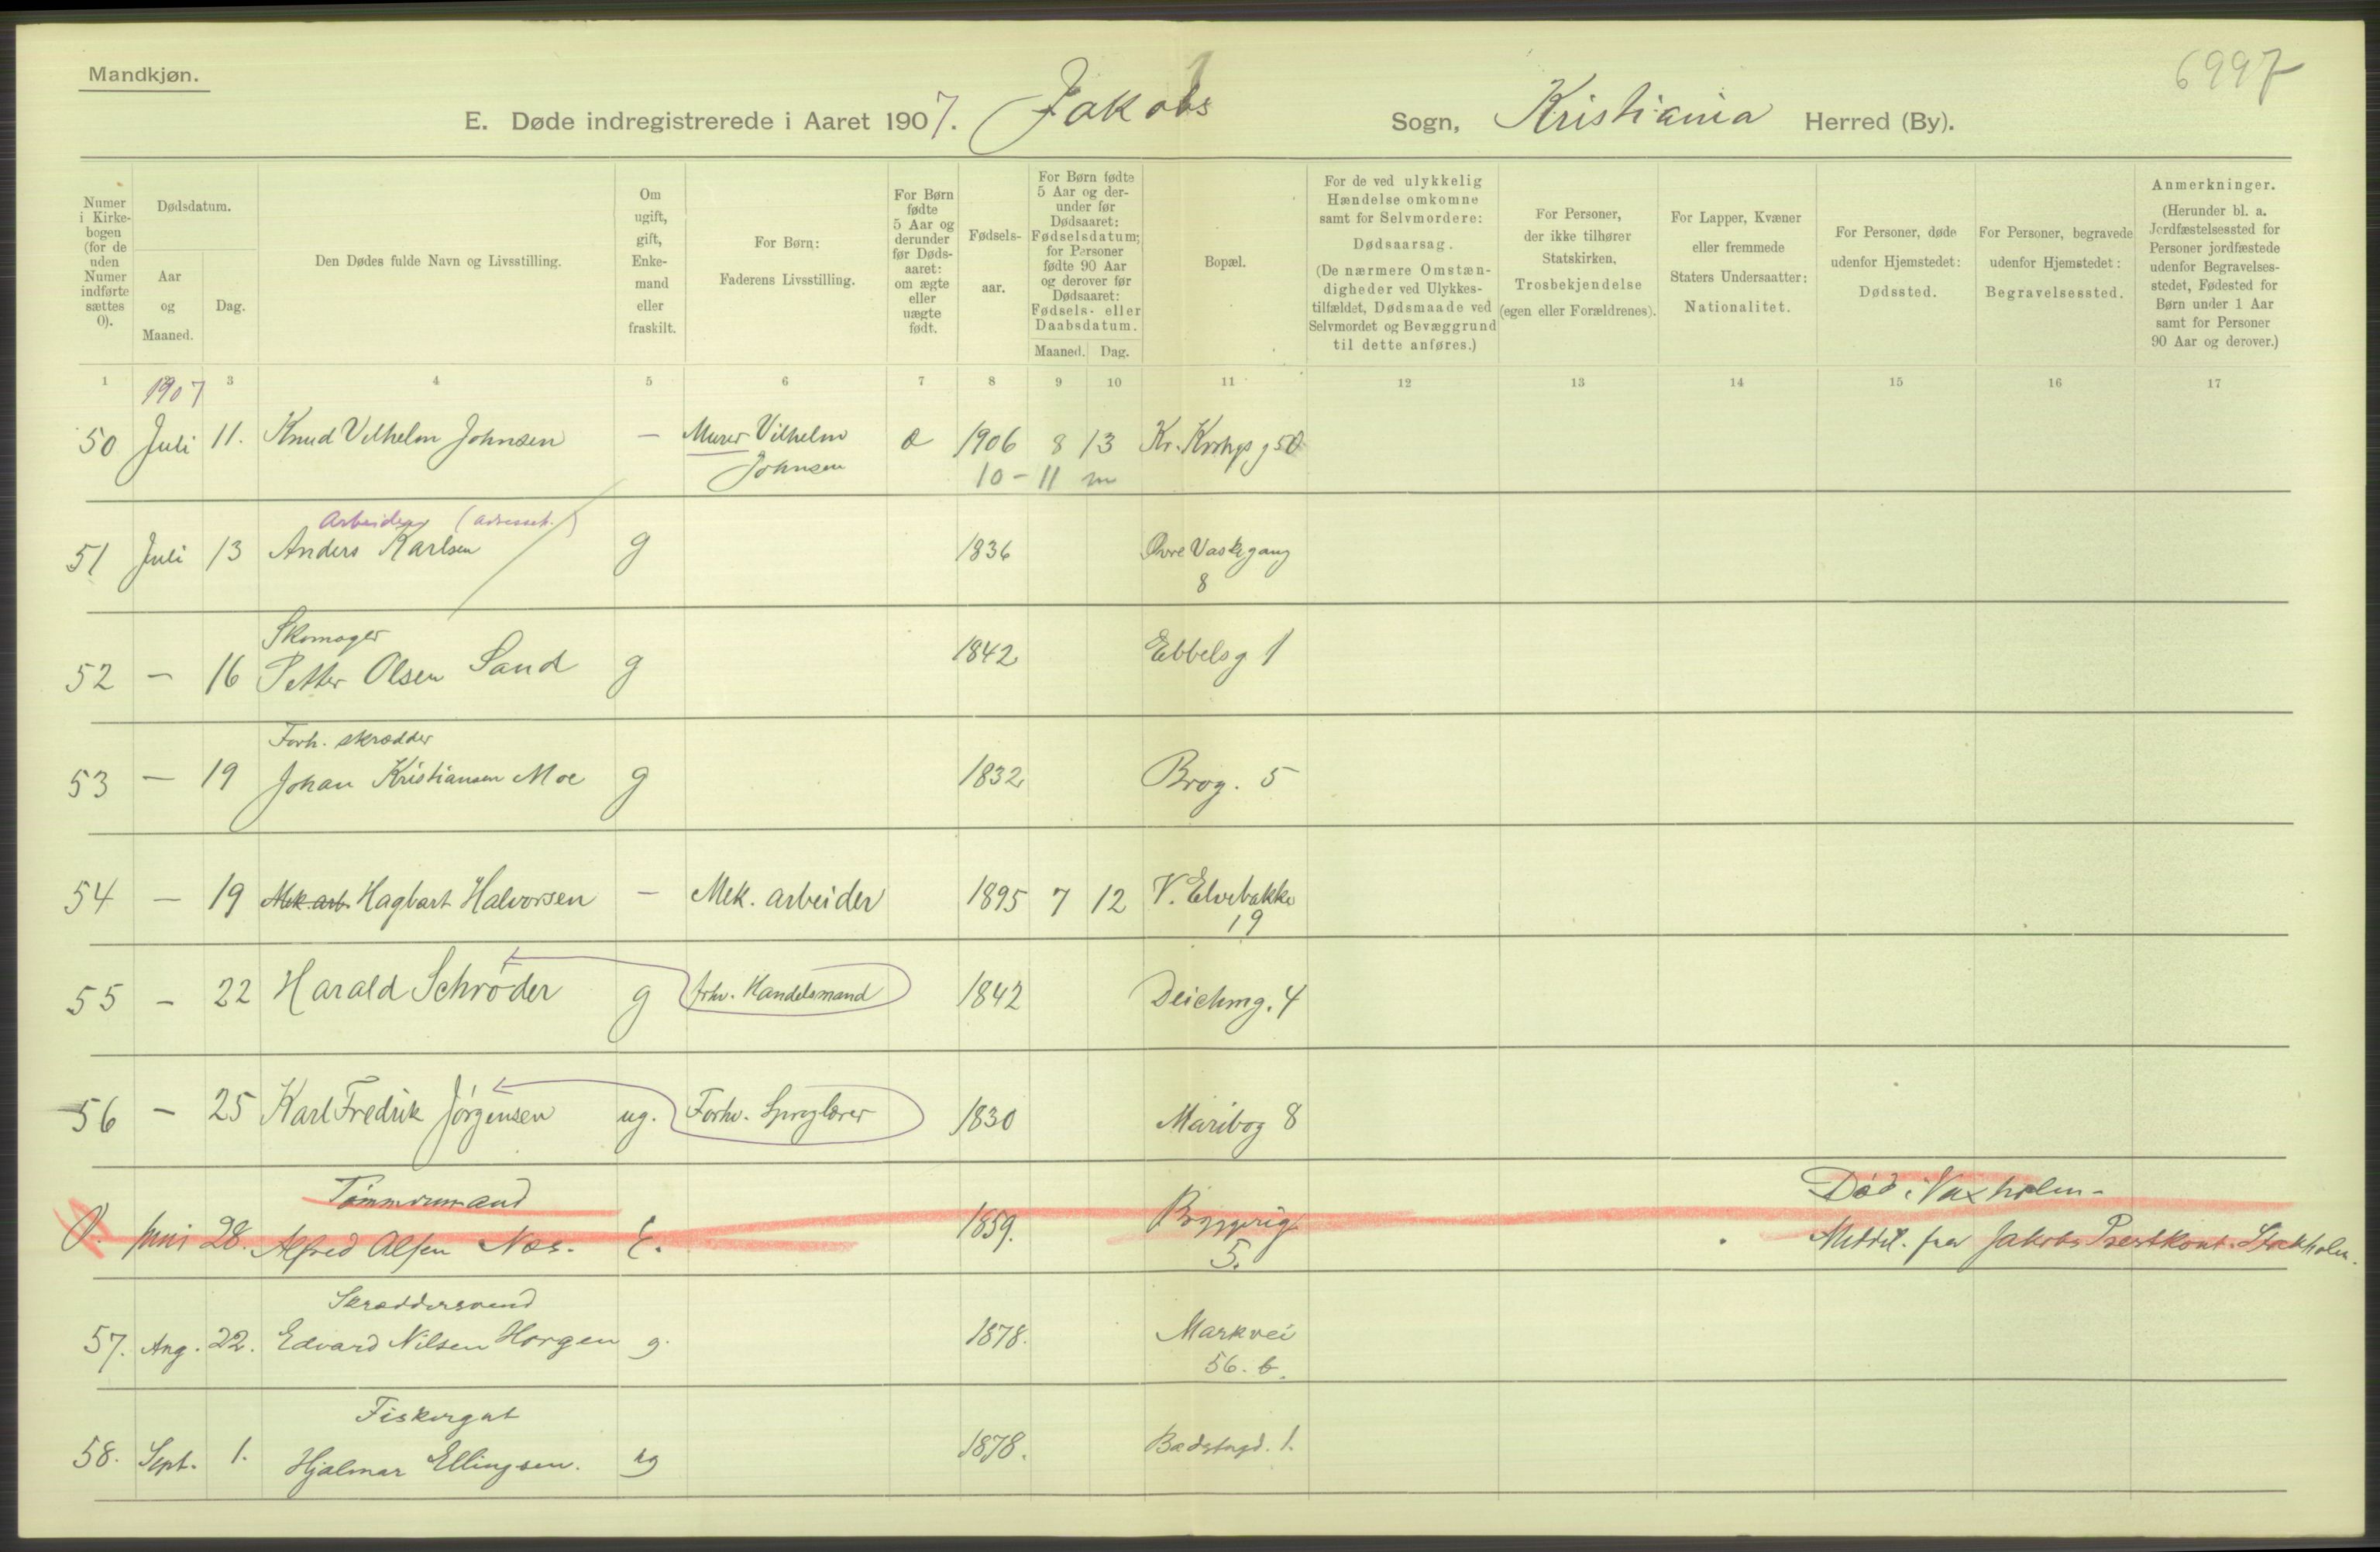 Mandkjøn.
6997
E. Døde indregistrerede i Aaret 1907. Jakobs Sogn, Kristiania Herred (By).
Numer i Kirkebogen (for de uden Numer indførte sættes 0).
Dødsdatum.
Aar og Maaned.
Dag.
Den Dødes fulde Navn og Livsstilling.
Om ugift, gift, Enkemand eller fraskilt.
For Børn: Faderens Livsstilling.
For Børn fødte 5 Aar og derunder før Dødsaaret: om ægte eller uægte født.
Fødselsaar.
For Børn fødte 5 Aar og derunder før Dødsaaret: Fødselsdatum; for Personer fødte 90 Aar og derover før Dødsaaret: Fødsels- eller Daabsdatum.
Maaned. Dag.
Bopæl.
For de ved ulykkelig Hændelse omkomne samt for Selvmordere: Dødsaarsag. (De nærmere Omstændigheder ved Ulykkestilfældet, Dødsmaade ved Selvmordet og Bevæggrund til dette anføres.)
For Personer, der ikke tilhører Statskirken, Trosbekjendelse (egen eller Forældrenes).
For Lapper, Kvæner eller fremmede Staters Undersaatter: Nationalitet.
For Personer, døde udenfor Hjemstedet: Dødssted.
For Personer, begravede udenfor Hjemstedet: Begravelsessted.
Anmerkninger. (Herunder bl. a. Jordfæstelsessted for Personer jordfæstede udenfor Begravelsesstedet, Fødested for Børn under 1 Aar samt for Personer 90 Aar og derover.)
1 1907 3 4 5 6 7 8 9 10 11 12 13 14 15 16 17
50 Juli 11. Knud Vilhelm Johnsen — Murer Vilhelm Johnsen 1906 8 13 Kr. Krohgs g 50
10 - 11 m
Arbeider
51 Juli 13 Anders Karlsen g 1836 Øvre Vaskegang 8
Skomager
52 — 16 Petter Olsen Sand g 1842 Ebbelsg 1
Forh. skrædder
53 — 19 Johan Kristiansen Moe g 1832 Brog. 5
54 — 19 Mek. arb. Hagbart Halvorsen — Mek. arbeider 1895 7 12 V. Elvebakke 19
55 — 22 Harald Schrøder g frhv. Handelsmand 1842 Deichmg. 4
56 — 25 Karl Fredrik Jørgensen ug. Forhv. Sproglærer 1830 Maribog 8
Tømmermand
0. Juni 28. Alfred Olsen Næs. E. 1859. 5. Død i Vaxholm -
Meddel. fra Jakobs Prestkont. Stockholm.
Skræddersvend
57. Aug. 22. Edvard Nilsen Horgen g. 1878. Markvei 56. b.
Fiskergut
58. Sept. 1. Hjalmar Ellingsen. ug 1878. Badstugd. 1.